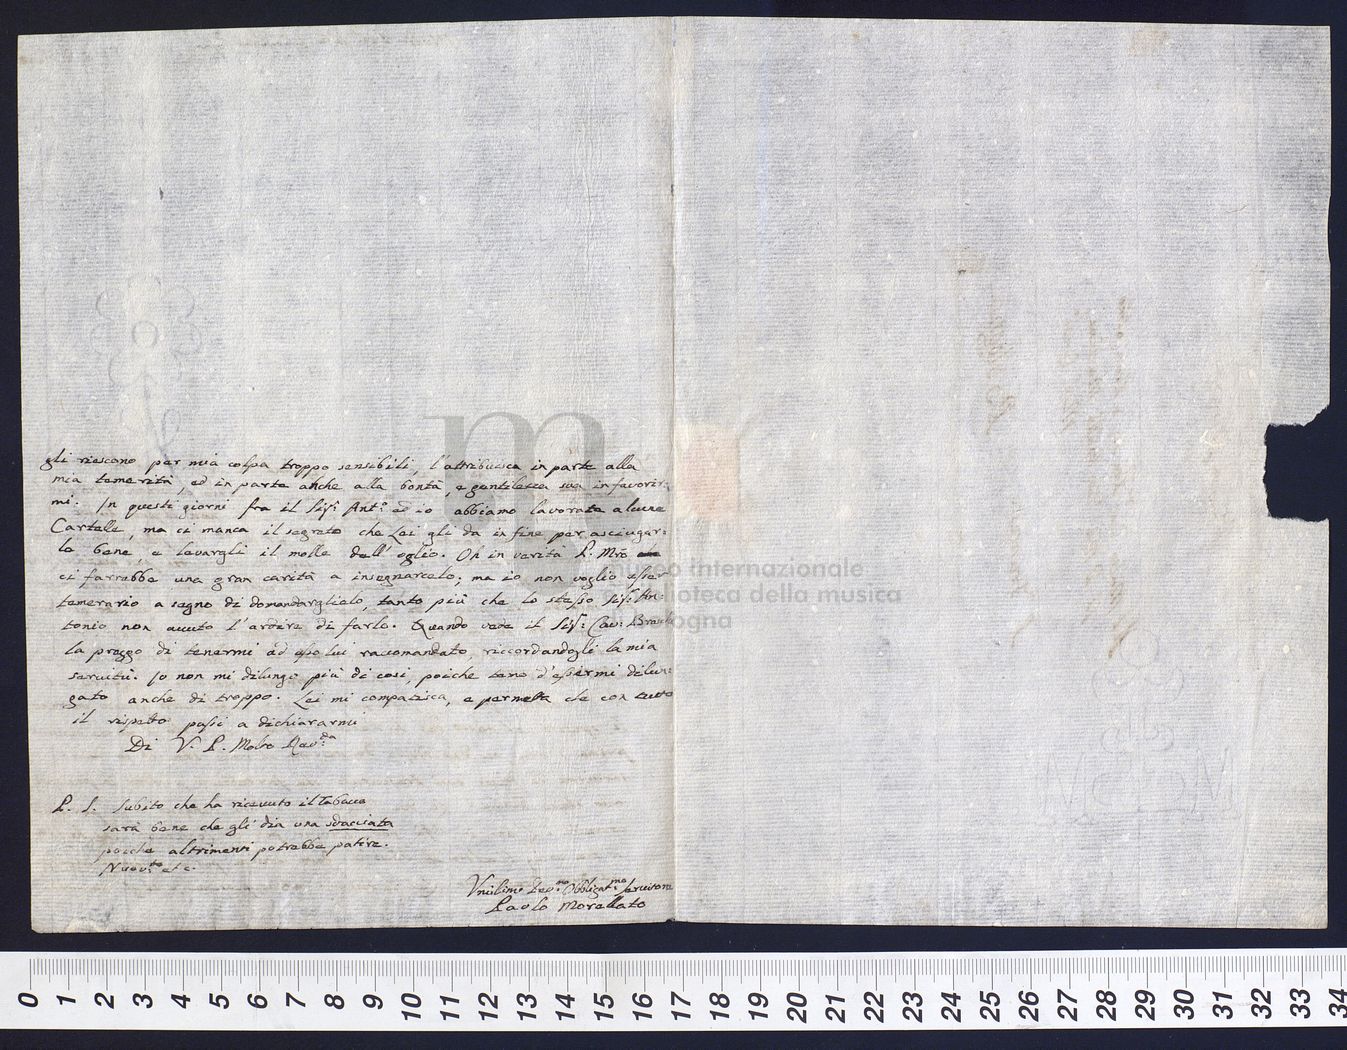 gli riescono per mia colpa troppo sensibili, l'attribuisca in parte alla
mia temerità, ed in parte anche alla bontà, e gentilezza sua in favorir:
mi. In questi giorni fra il Sig.r Ant.o ed io abbiamo lavorate alcune
Cartelle, ma ci manca il segreto che Lei gli da in fine per asciugar:
le bene, e levargli il molle dell'oglio. Oh in verità P. Mro
ci farrebbe una gran carità a insegnarcelo; ma io non voglio esser
temerario a segno di domandarglielo, tanto più che lo stesso Sig.r An:
tonio non avuto l'ardire di farlo. Quando vede il Sig.r Cav.
la preggo di tenermi ad esso lui racomandato, riccordandogli la mia
servitù. Io non mi dilungo più di così, poiche temo d'essermi dilun:
gato anche di troppo. Lei mi compatisca, e permetta che con tutto
il rispetto passi a dichiararmi
Di V. P. Molto Rev.da
P. S. Subito che ha ricevuto il Tabacco
sarà bene che gli dia una sdacciata
poiche altrimenti potrebbe patire.
Nuov.te etc.
Umilimo Dev.mo Obbligat.mo Servitore
Paolo Morellato
museo internazionale
biblioteca della musica
bologna
0 1 2 3 4 5 6 7 8 9 10 11 12 13 14 15 16 17 18 19 20 21 22 23 24 25 26 27 28 29 30 31 32 33 34